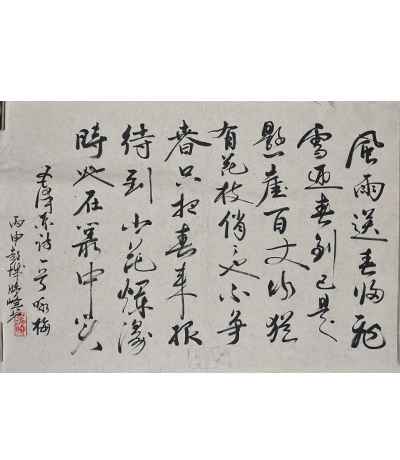 風雨送春归飛
雪迎春到已是
懸崖百丈冰犹
有花枝俏々也不争
春只把春来报
待到山花爛漫
時她在叢中笑
毛泽东诗一首咏梅
丙申